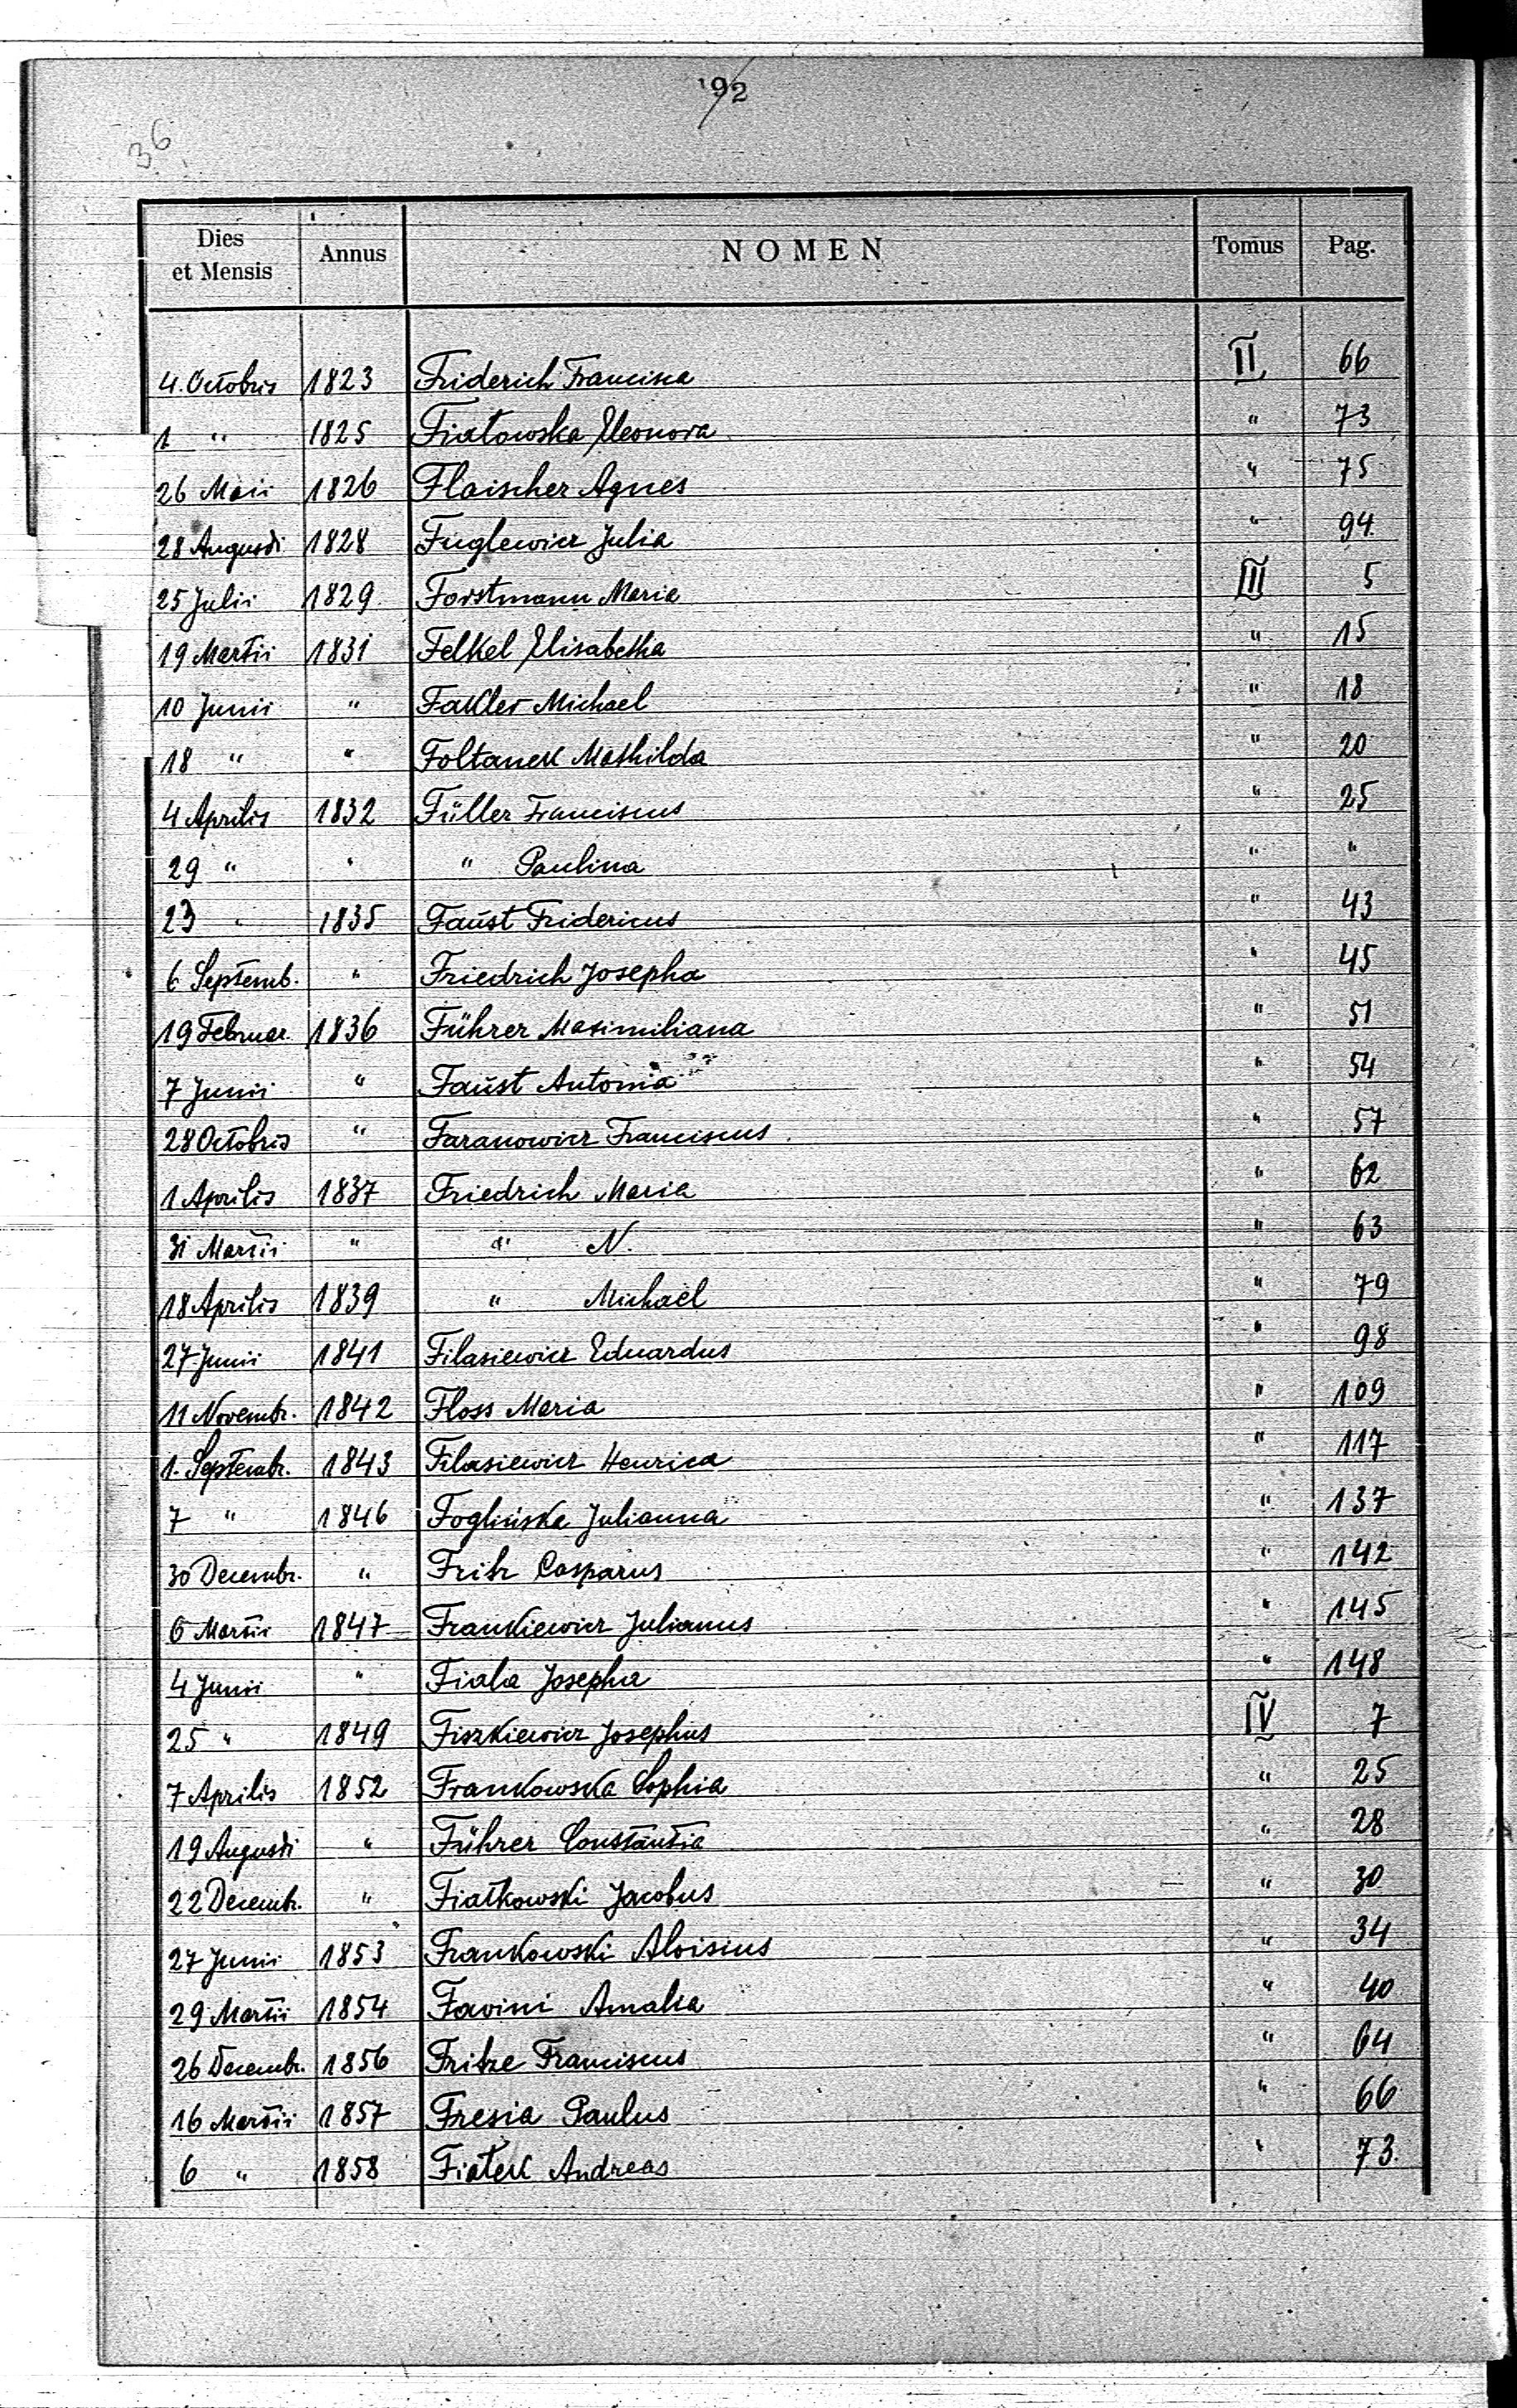 92
36
Dies et Mensis Annus NOMEN Tomus Pag.
4. Octobris 1823 Friderich Francisca II 66
1 " 1825 Fiałowska Eleonora " 73
26 Maii 1826 Flaischer Agnes " 75
28 Augusti 1828 Fuglewicz Julia " 94
25 Julii 1829 Forstmann Maria III 5
19 Martii 1831 Felkel Elisabetha " 15
10 Junii " Fakler Michael " 18
18 " " Foltanek Mathilda " 20
4 Aprilis 1832 Füller Franciscus " 25
29 " " " Paulina " "
23 " 1835 Faust Fridericus " 43
6 Septemb. " Friedrich Josepha " 45
19 Februar. 1836 Führer Maximiliana " 51
7 Junii " Faust Antonia " 54
28 Octobris " Faranowicz Franciscus " 57
1 Aprilis 1837 Friedrich Maria " 62
31 Martii " " N. " 63
18 Aprilis 1839 " Michael " 79
27 Junii 1841 Filasiewicz Eduardus " 98
11 Novembr. 1842 Floss Maria " 109
1. Septembr. 1843 Filasiewicz Henrica " 117
7 " 1846 Foglińska Julianna " 137
30 Decembr. " Fritz Casparus " 142
6 Martii 1847 Frankiewicz Julianus " 145
4 Junii " Fiala Josepha " 148
25 " 1849 Fiszkiewicz Josephus IV 7
7 Aprilis 1852 Frankowska Sophia " 25
19 Augusti " Führer Constantia " 28
22 Decembr. " Fiałkowski Jacobus " 30
27 Junii 1853 Frankowski Aloisius " 34
29 Martii 1854 Favini Amalia " 40
26 Decembr. 1856 Fritze Franciscus " 64
16 Martii 1857 Fresia Paulus " 66
6 " 1858 Fiałek Andreas " 73.